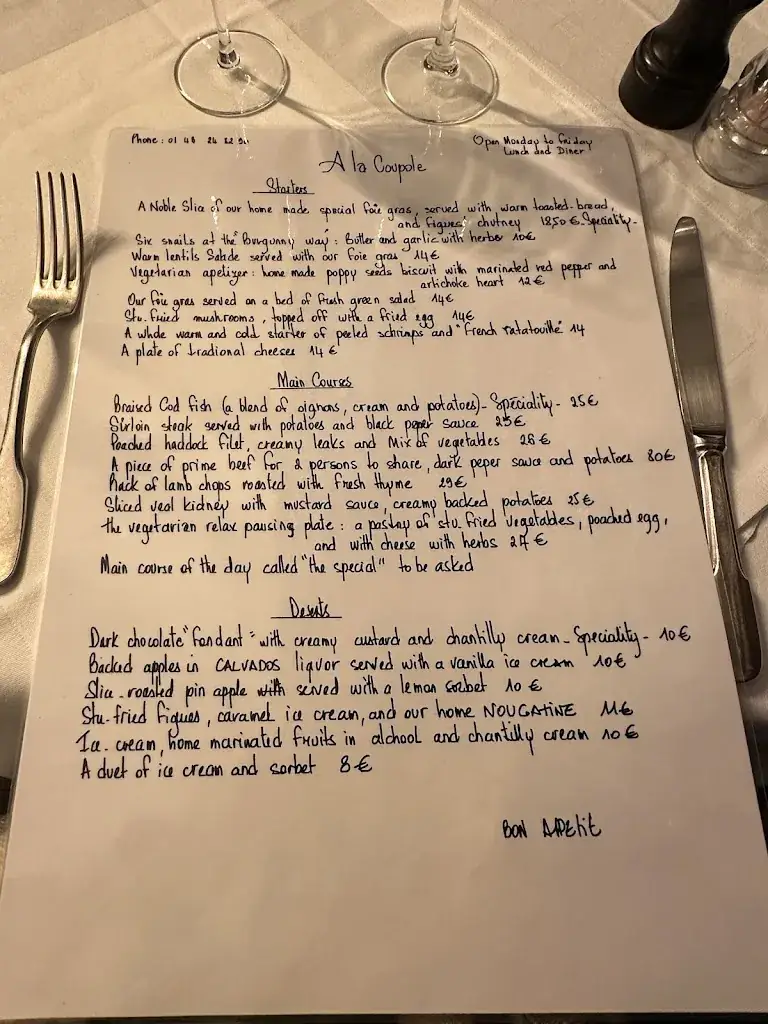 Phone : 01 48 24
Open Monday to Friday
Lunch and Diner
A la Coupole
Starters
A Noble Slice of our home made special foie gras, served with warm toasted-bread,
and figues chutney 18,50 € Speciality-
Six snails at the "Burgunny way": Butter and garlic with herbs 10€
Warm lentils Salade served with our foie gras 14€
Vegetarian apetizer : home made poppy seeds biscuit with marinated red pepper and
artichoke heart 12€
Our foie gras served on a bed of fresh green salad 14€
Stu.fried mushrooms, topped off with a fried egg 14€
A whole warm and cold starter of peeled schrimps and "French ratatouille" 14
A plate of tradional cheeses 14 €
Main Courses
Braised Cod fish (a blend of oignons, cream and potatoes)- Speciality - 25€
Sirloin steak served with potatoes and black peper sauce 25€
Poached haddock filet, creamy leaks and Mix of vegetables 28€
A piece of prime beef for 2 persons to share, dark peper sauce and potatoes 80€
Rack of lamb chops roasted with fresh thyme 29€
Sliced veal kidney with mustard sauce, creamy backed potatoes 25€
The vegetarian relax pausing plate : a pastry of stu.fried vegetables, poached egg,
and with cheese with herbs 27€
Main course of the day called "the special" to be asked
Deserts
Dark chocolate "fondant" with creamy custard and chantilly cream - Speciality - 10€
Backed apples in CALVADOS liquor served with a vanilla ice cream 10€
Slice-roasted pin apple with served with a lemon sorbet 10€
Stu-fried figues, caramel ice cream, and our home NOUGATINE 11€
Ice-cream, home marinated fruits in alchool and chantilly cream 10€
A duet of ice cream and sorbet 8€
BON APPetit